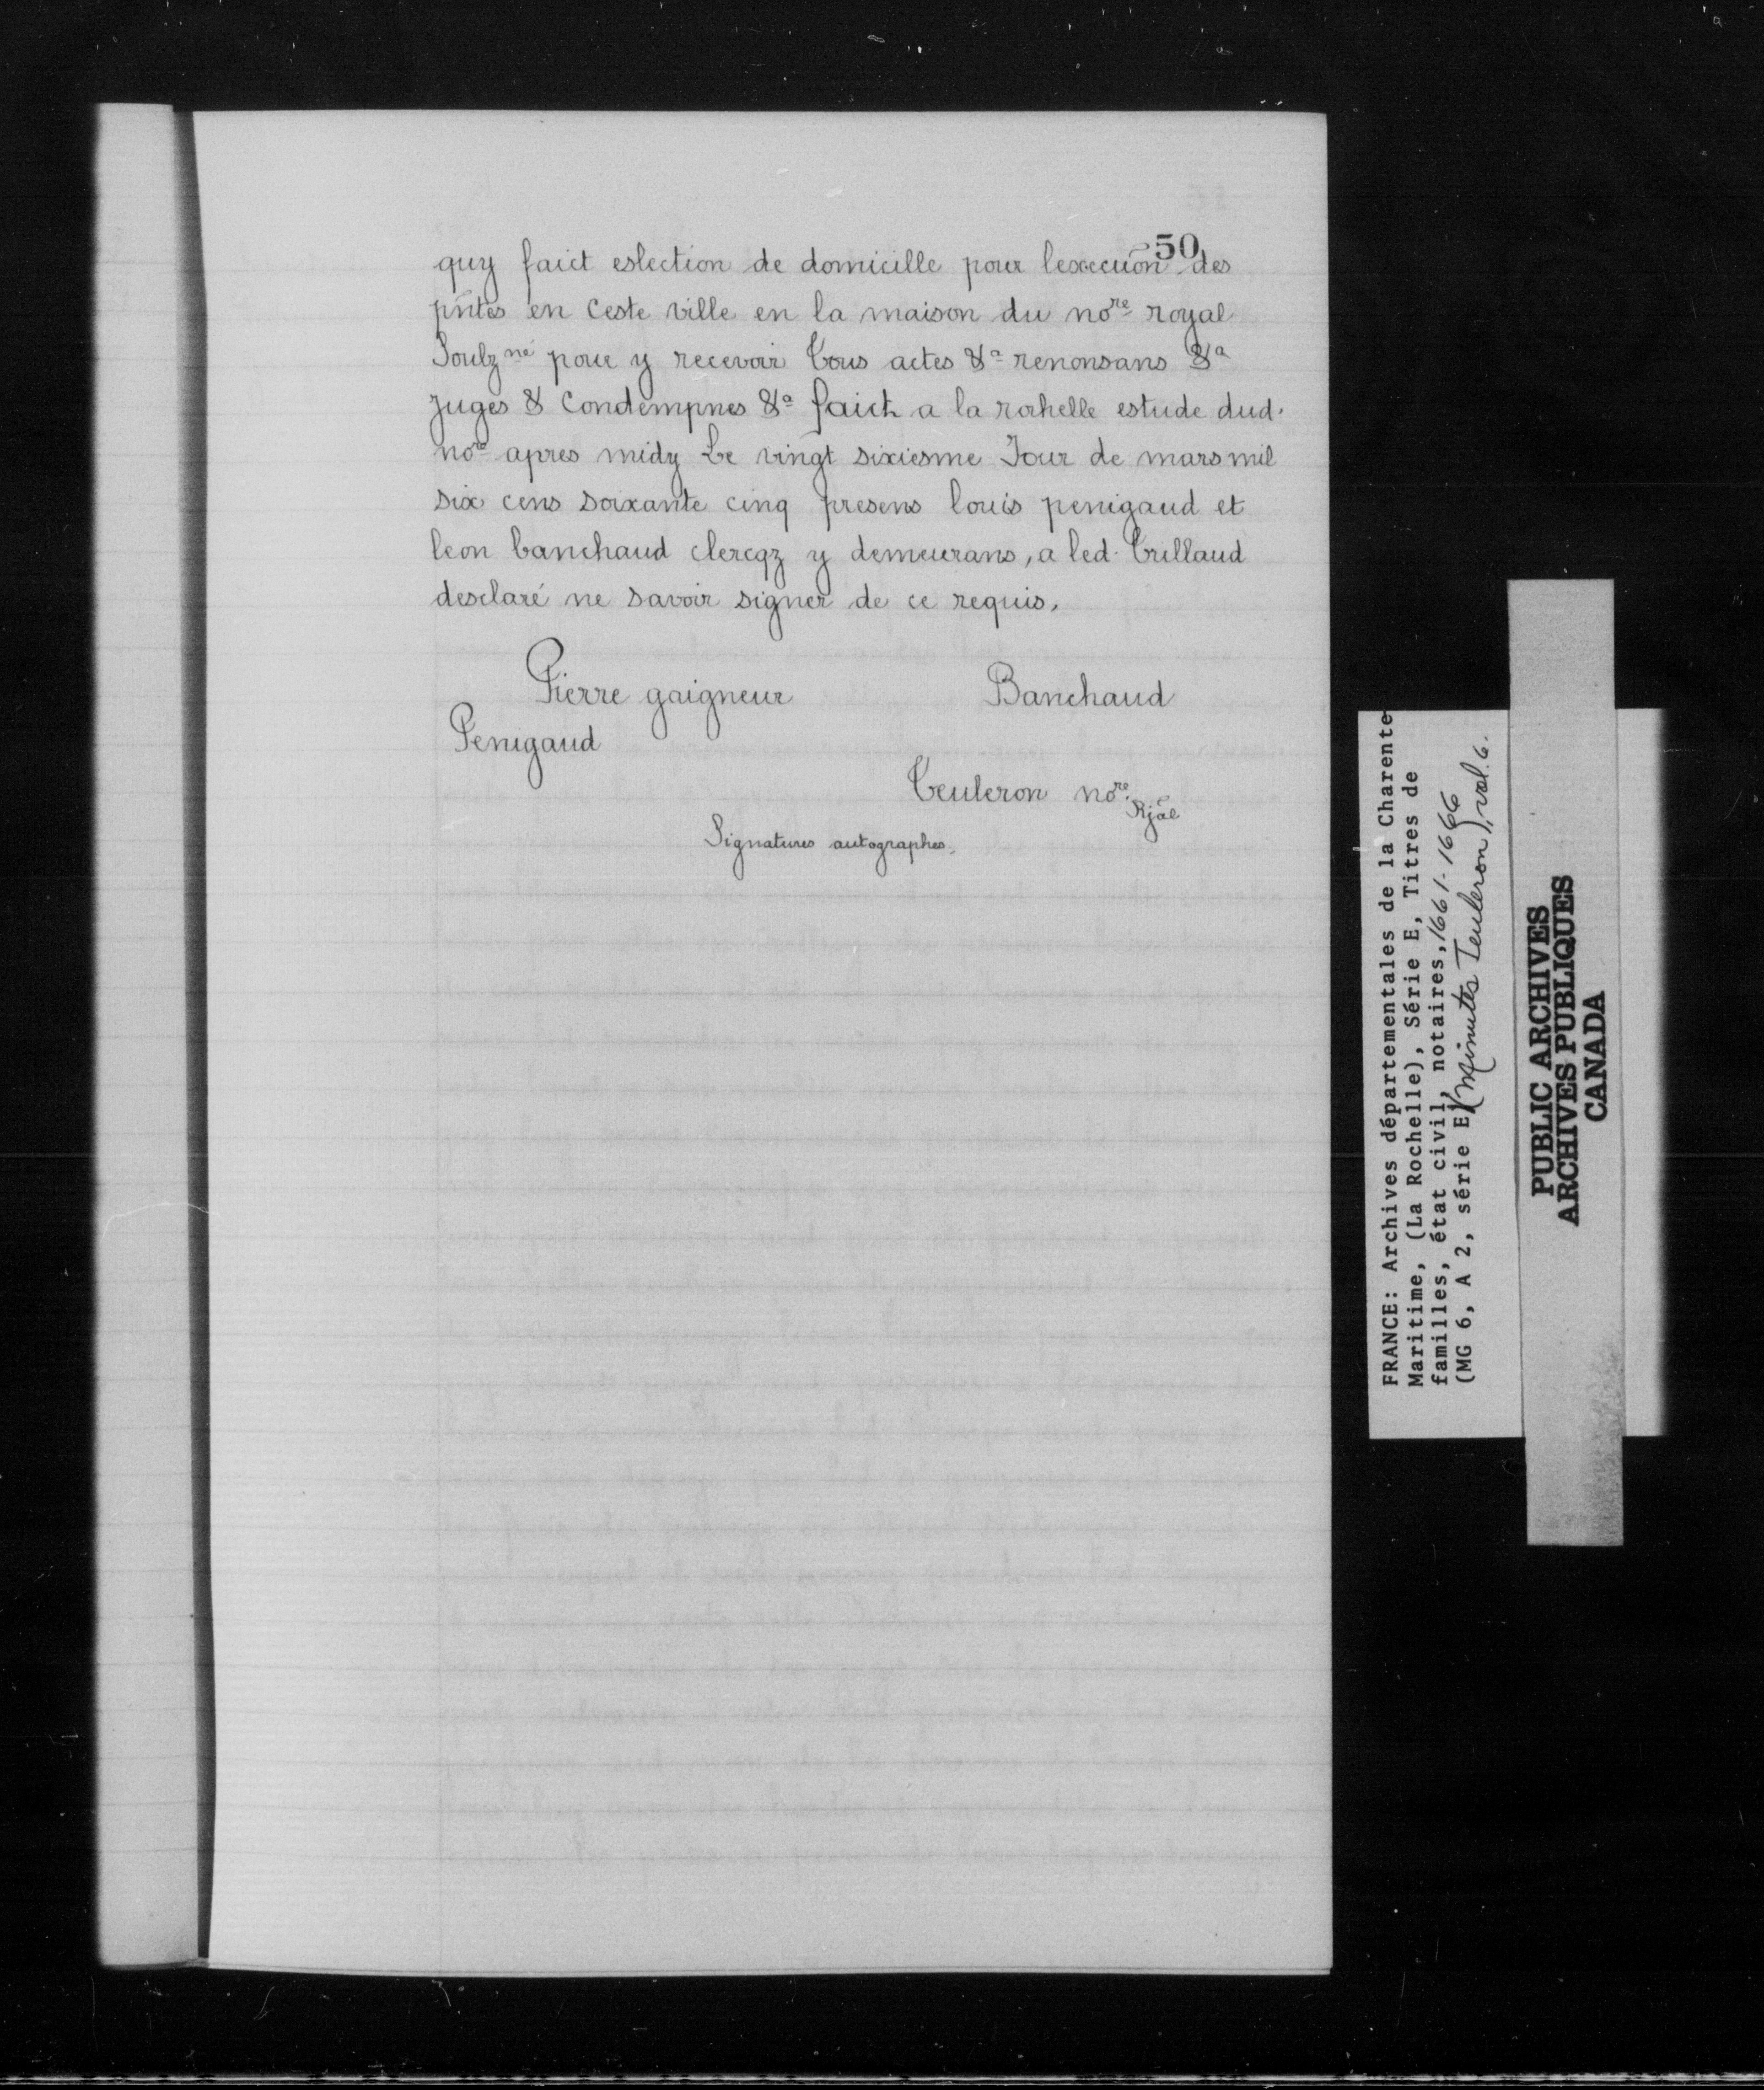 50
quy faict eslection de domicille pour lexecuõn des
pñtes en Ceste ville en la maison du noʳᵉ royal
Soulzⁿᵉ́ pour y recevoir Tous actes &ᵃ renonsans &ᵃ
Juges & Condempnes &ᵃ faict a la rochelle estude dud.
noʳᵉ apres midy Le vingt sixiesme Jour de mars mil
six cens soixante cinq presens louis penigaud et
leon banchaud clercqz y demeurans, a led. Trillaud
desclaré ne savoir signer de ce requis.
Pierre gaigneur Banchaud
Penigaud
Teuleron noʳᵉ. Rjãl
Signatures autographes.
FRANCE: Archives départementales de la Charente-
Maritime, (La Rochelle), Série E, Titres de
familles, état civil, notaires, 1661-1666
(MG 6, A 2, série E) (Minutes Teuleron), vol. 6.
PUBLIC ARCHIVES
ARCHIVES PUBLIQUES
CANADA